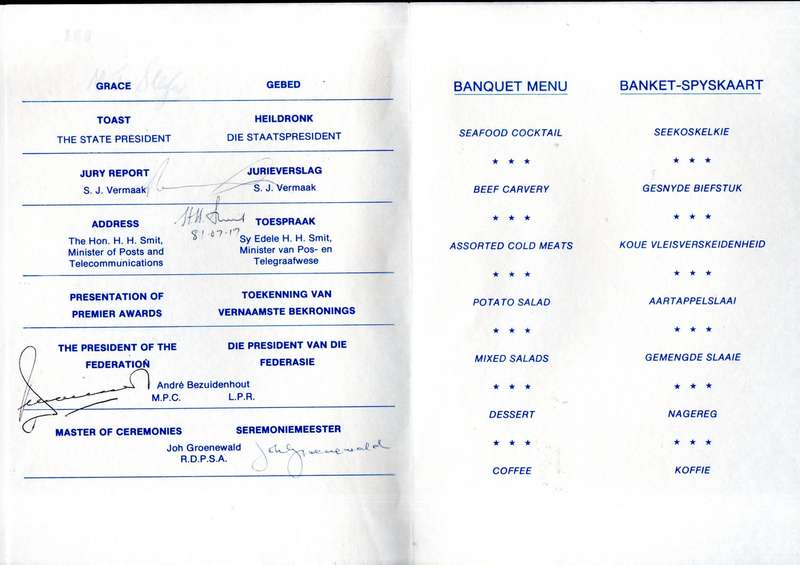 GRACE
GEBED
TOAST
HEILDRONK
THE STATE PRESIDENT
DIE STAATSPRESIDENT
JURY REPORT
JURIEVERSLAG
S. J. Vermaak
S. J. Vermaak
H.H. Smit
81-07-17
ADDRESS
TOESPRAAK
The Hon. H. H. Smit,
Minister of Posts and
Telecommunications
Sy Edele H. H. Smit,
Minister van Pos- en
Telegraafwese
PRESENTATION OF
PREMIER AWARDS
TOEKENNING VAN
VERNAAMSTE BEKRONINGS
THE PRESIDENT OF THE
FEDERATION
DIE PRESIDENT VAN DIE
FEDERASIE
André Bezuidenhout
M.P.C. L.P.R.
MASTER OF CEREMONIES
SEREMONIEMEESTER
Joh Groenewald
R.D.P.S.A.
Joh Groenewald
BANQUET MENU
SEAFOOD COCKTAIL
* * *
BEEF CARVERY
* * *
ASSORTED COLD MEATS
* * *
POTATO SALAD
* * *
MIXED SALADS
* * *
DESSERT
* * *
COFFEE
BANKET-SPYSKAART
SEEKOSKELKIE
* * *
GESNYDE BIEFSTUK
* * *
KOUE VLEISVERSKEIDENHEID
* * *
AARTAPPELSLAAI
* * *
GEMENGDE SLAAIE
* * *
NAGEREG
* * *
KOFFIE